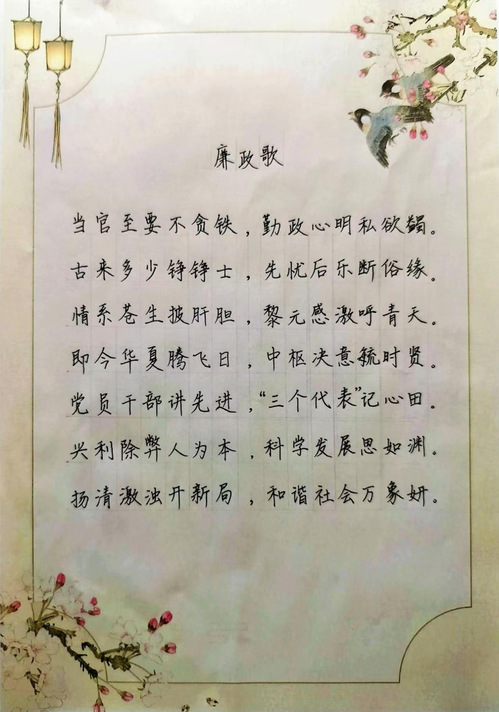 廉政歌
当官至要不贪钱，勤政心明私欲蠲。
古来多少铮铮士，先忧后乐断俗缘。
情系苍生披肝胆，黎元感激呼青天。
即今华夏腾飞日，中枢决意毓时贤。
党员干部讲先进，“三个代表”记心田。
兴利除弊人为本，科学发展思如渊。
扬清激浊开新局，和谐社会万象妍。